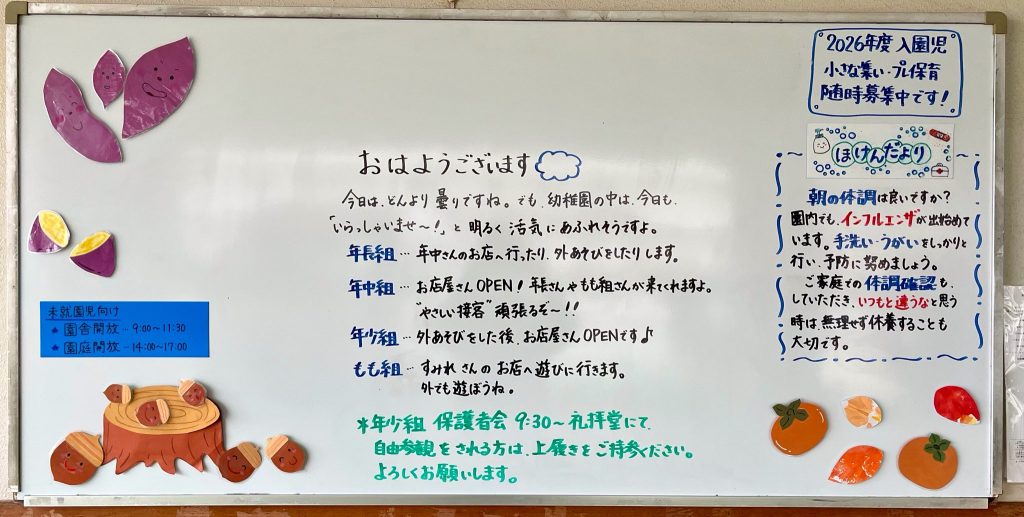 おはようございます
今日は、どんより曇りですね。でも、幼稚園の中は、今日も、
「いらっしゃいませ〜!」と明るく活気にあふれそうですよ。
年長組…年中さんのお店へ行ったり、外あそびをしたりします。
年中組…お店屋さんOPEN!年長さんやもも組さんが来てくれますよ。
"やさしい接客"頑張るぞ〜!!
年少組…外あそびをした後、お店屋さんOPENです♪
もも組…すみれさんのお店へ遊びに行きます。
外でも遊ぼうね。
*年少組 保護者会 9:30〜礼拝堂にて、
自由参観をされる方は、上履きをご持参ください。
よろしくお願いします。
未就園児向け
★園舎開放…9:00〜11:30
★園庭開放…14:00〜17:00
2026年度 入園児
小さな集い・プレ保育
随時募集中です!
ほけんだより
朝の体調は良いですか?
園内でも、インフルエンザが出始めて
います。手洗い・うがいをしっかりと
行い、予防に努めましょう。
ご家庭での体調確認も、
していただき、いつもと違うなと思う
時は、無理せず休養することも
大切です。